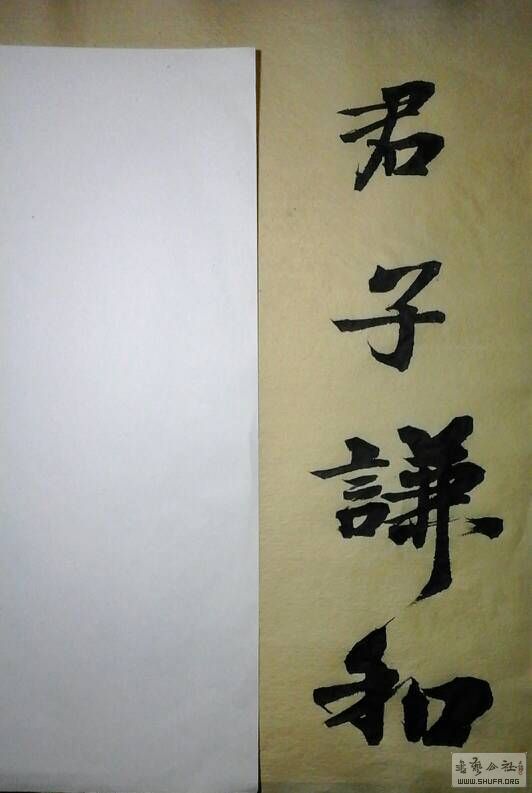 君子謙和
书艺公社
WWW.SHUFA.ORG